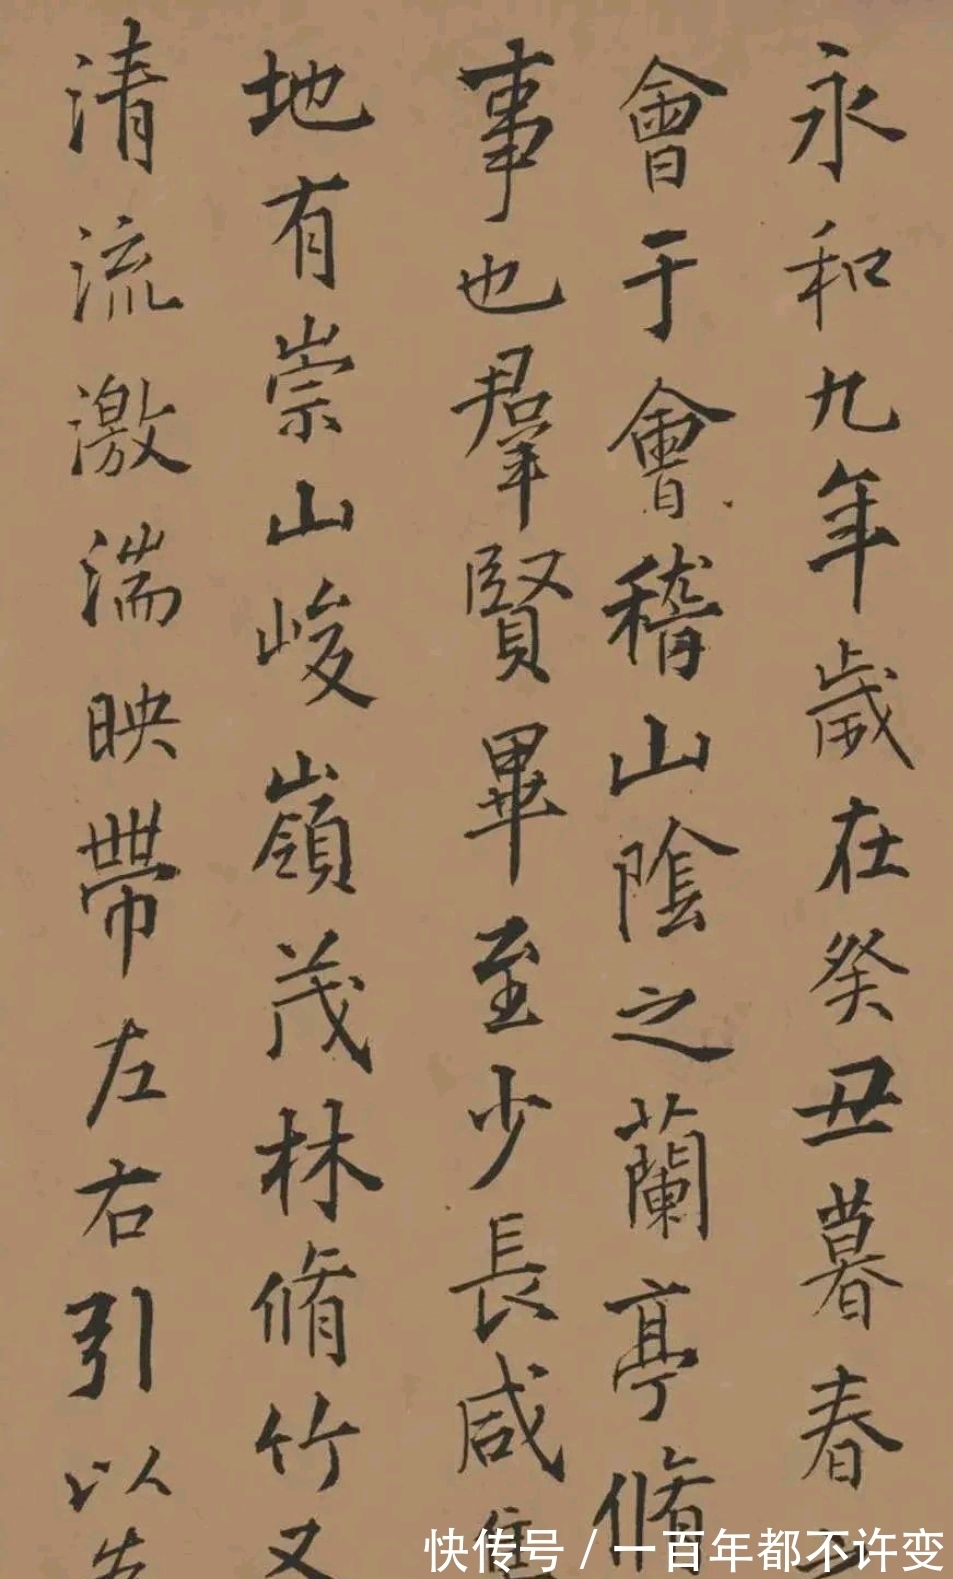 永和九年歲在癸丑暮春
會于會稽山陰之蘭亭脩
事也羣賢畢至少長咸
地有崇山峻嶺茂林脩竹又
清流激湍映帶左右引以
快传号/一百年都不许变